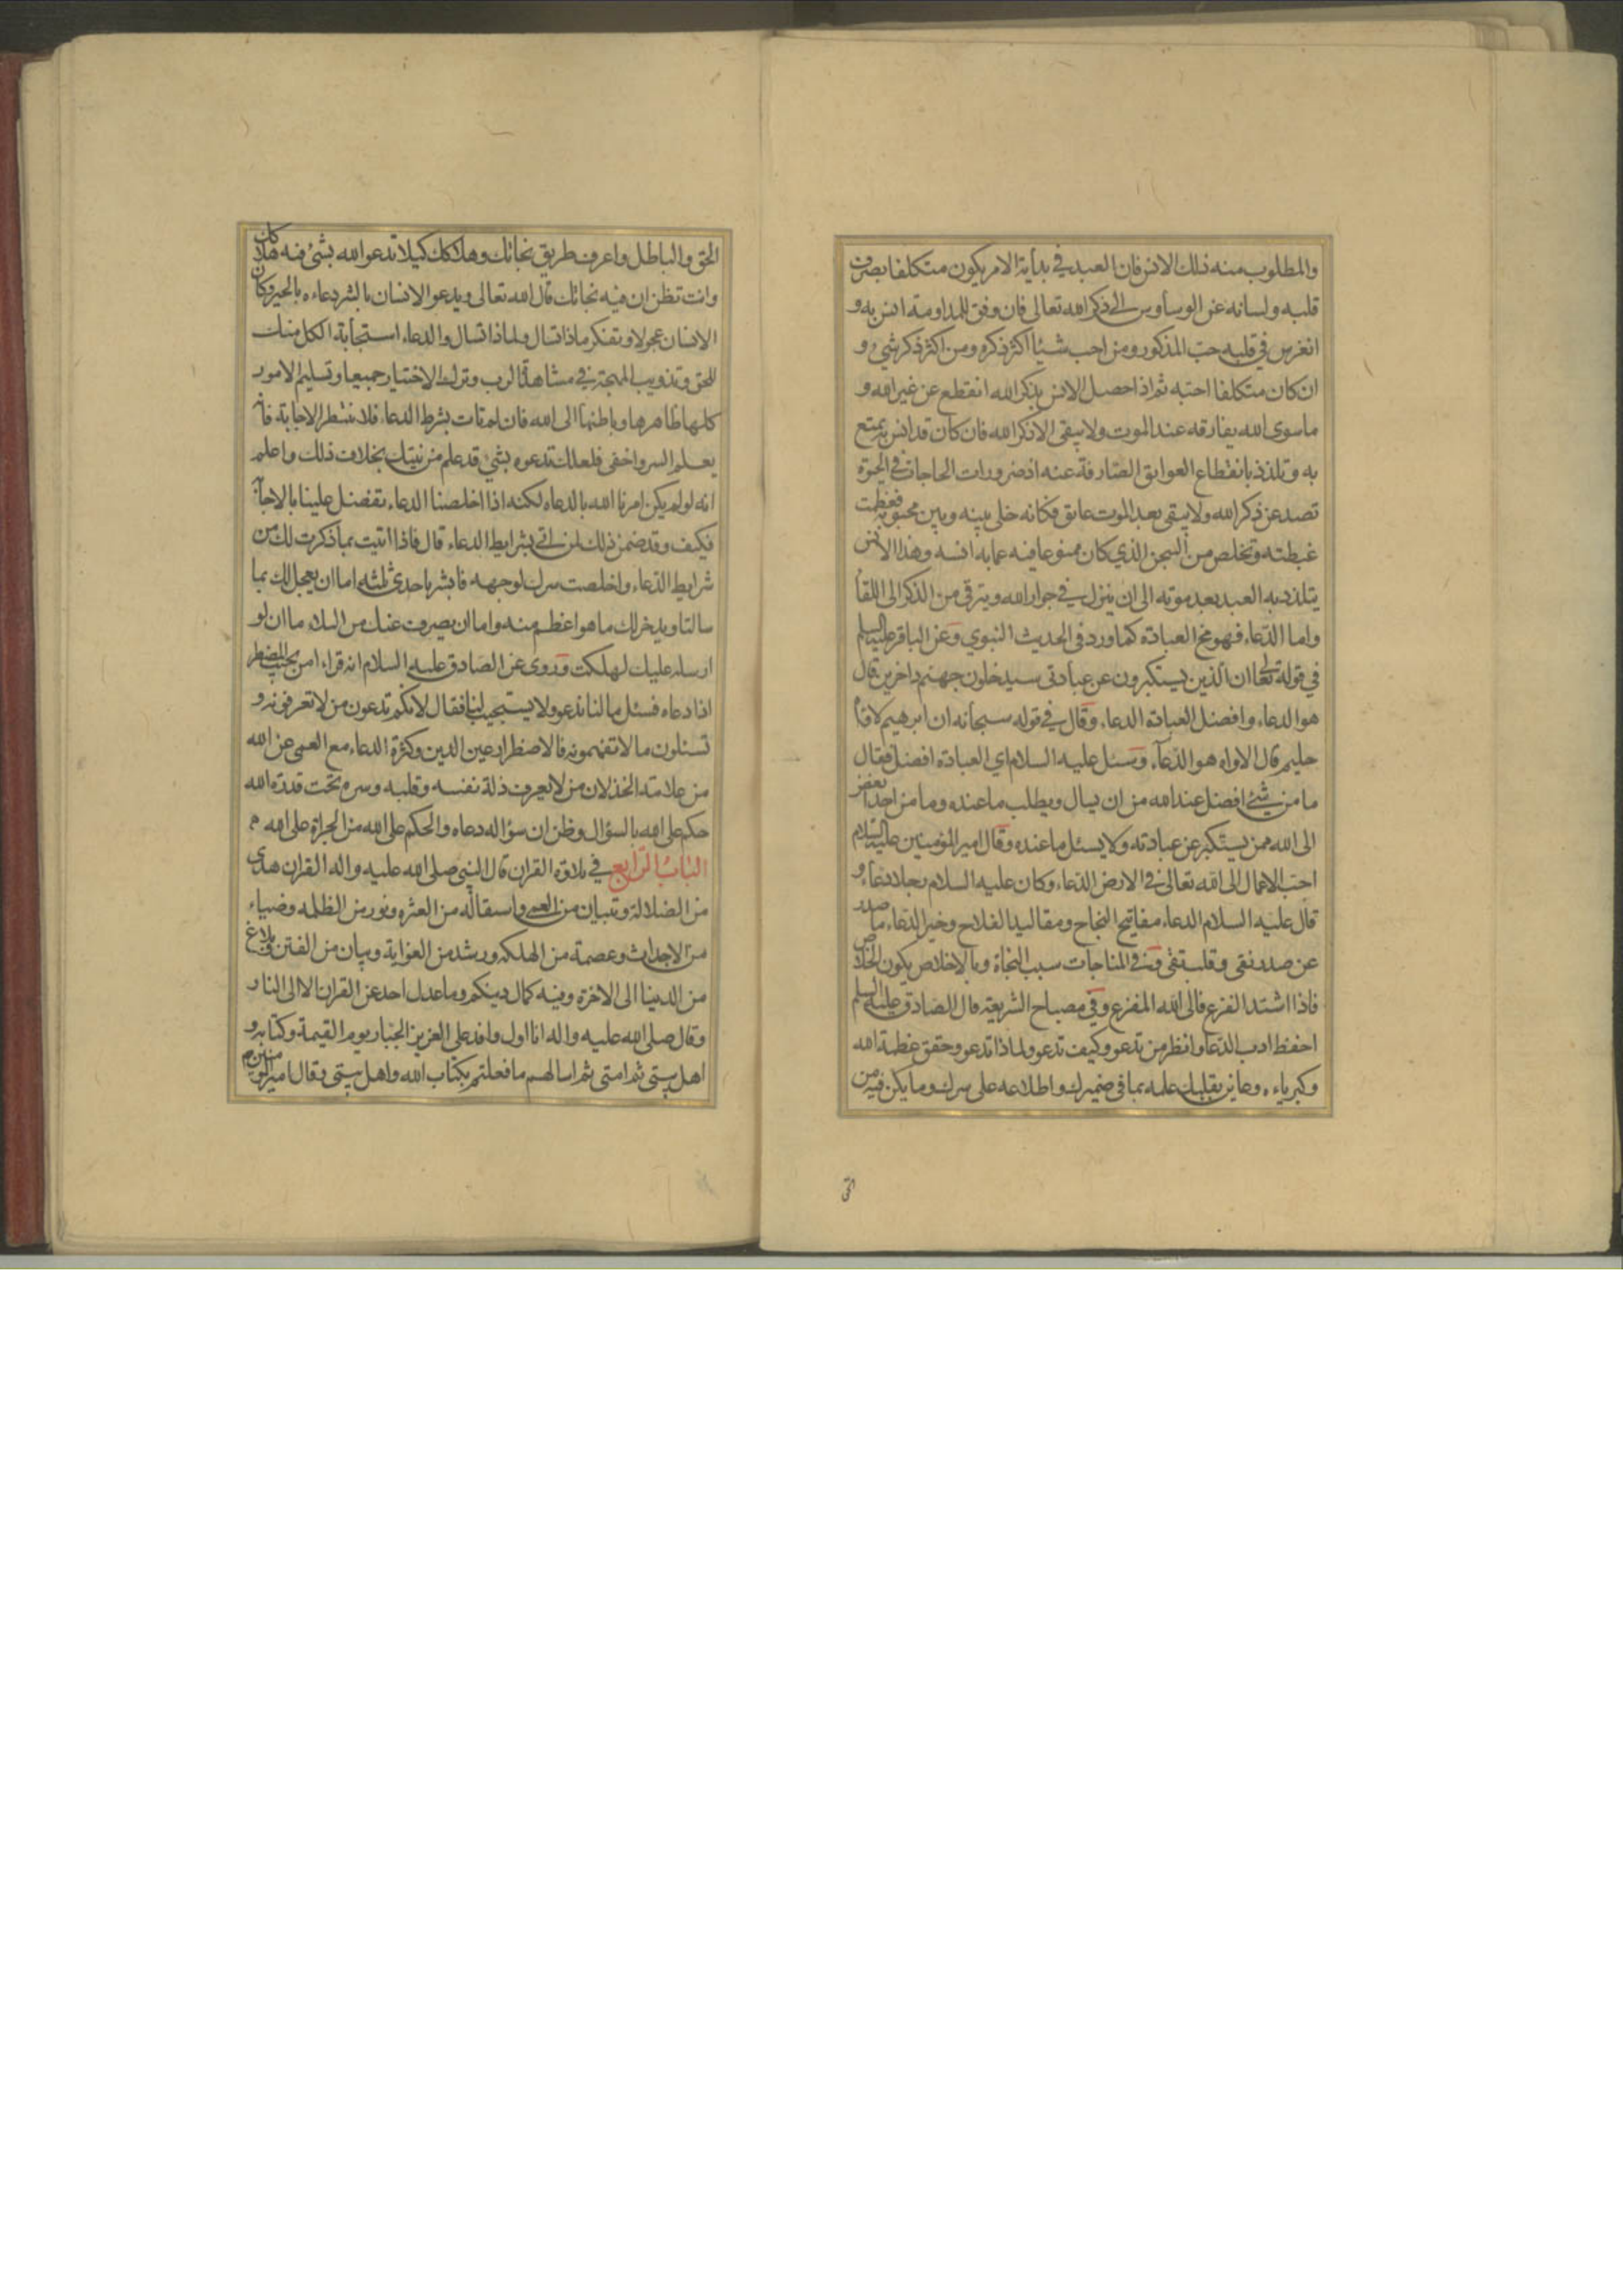 والمطلوب منه ذلك الانس فان العبد في بداية الامر يكون متكلفا بصرف
قلبه ولسانه عن الوساوس الى ذكر الله تعالى فان وفق للمداومة انس به و
انغرس في قلبه حب المذكور ومن احب شيئا اكثر ذكره ومن اكثر ذكر شيء و
ان كان متكلفا احبه ثم اذا حصل الانس بذكر الله انقطع عن غير الله و
ماسوى الله يفارقه عند الموت ولا يبقى الا ذكر الله فان كان قد انس به تمتع
به وتلذذ بانقطاع العوايق الصارفة عنه اذ ضرورات الحاجات في الحيوة
تصد عن ذكر الله ولا يبقى بعد الموت عايق فكانه خلى بينه وبين محبوبه فعظمت
غبطته وتخلص من السجن الذي كان ممنوعا فيه عما به انسه وهذا الانس
يتلذذ به العبد بعد موته الى ان ينزل في جوار الله ويترقى من الذكر الى اللقآ
واما الدعاء فهو مخ العبادة كما ورد في الحديث النبوي وعن الباقر عليه السلم
في قوله تعالى ان الذين يستكبرون عن عبادتى سيدخلون جهنم داخرين قال
هو الدعاء وافضل العبادة الدعاء وقال في قوله سبحانه ان ابرهيم لاواه
حليم قال الاواه هو الدعآء وسئل عليه السلام اي العبادة افضل فقال
ما من شئ افضل عند الله من ان يسال ويطلب ما عنده وما من احد ابغض
الى الله ممن يستكبر عن عبادته ولا يسئل ما عنده وقال امير المؤمنين عليه السلام
احب الاعمال الى الله تعالى في الارض الدعاء وكان عليه السلام رجلا دعاء و
قال عليه السلام الدعاء مفاتيح النجاح ومقاليد الفلاح وخير الدعاء ما صدر
عن صدر نقي وقلب تقي وفي المناجات سبب النجاة وبالاخلاص يكون الخلاص
فاذا اشتد الفزع فالى الله المفزع وفي مصباح الشريعة قال الصادق عليه السلم
احفظ ادب الدعا وانظر من تدعو وكيف تدعو ولماذا تدعو وحقق عظمة الله
وكبرياءه وعاين بقلبك علمه بما في ضميرك واطلاعه على سرك وما يكن فيه من
الحق والباطل واعرف طريق نجاتك وهلاكك كيلا تدعو الله بشئ فيه هلاكك
وانت تظن ان فيه نجاتك قال الله تعالى ويدعو الانسان بالشر دعاءه بالخير وكان
الانسان عجولا وتفكر ماذا تسال ولماذا تسال والدعاء استجابة الكل منك
للحق وتذويب المهجة في مشاهدة الرب وترك الاختيار جميعا وتسليم الامور
كلها ظاهرها وباطنها الى الله فان لم تات بشرط الدعاء فلا تنتظر الاجابة فانه
يعلم السر واخفى فلعلك تدعوه بشئ قد علم من نيتك بخلاف ذلك واعلم
انه لو لم يكن امرنا الله بالدعاء لكنه اذا اخلصنا الدعاء تفضل علينا بالاجابة
فكيف وقد ضمن ذلك لمن اتى بشرايط الدعاء قال فاذا اتيت بما ذكرت لك من
شرايط الدعاء واخلصت سرك لوجهه فابشر باحدى ثلثه اما ان يعجل لك بما
سالت او يدخر لك ما هو اعظم منه واما ان يصرف عنك من البلاء ما ان لو
ارسله عليك لهلكت وروى عن الصادق عليه السلام انه قراء امن يجيب المضطر
اذا دعاه فسئل مالنا ندعو ولا يستجيب لنا فقال لانكم تدعون من لا تعرفونه و
تسئلون ما لا تفهمونه فالاضطرار عين الدين وكثرة الدعاء مع العمى عن الله
من علامة الخذلان من لا يعرف ذلة نفسه وقلبه وسره تحت قدرة الله
حكم على الله بالسؤال وظن ان سؤاله دعاه والحكم على الله من الجراة على الله م
الباب الرابع في تلاوة القران قال النبي صلى الله عليه واله القران هدى
من الضلالة وتبيان من العمى واستقالة من العثره ونور من الظلمه وضياء
من الاجداث وعصمة من الهلكه ورشد من الغواية وبيان من الفتن وبلاغ
من الدينا الى الاخرة وفيه كمال دينكم وما عدل احد عن القران الا الى النار
وقال صلى الله عليه واله انا اول وافد على العزيز الجبار يوم القيمة وكتابه و
اهل بيتى ثم امتى ثم اسالهم ما فعلتم بكتاب الله واهل بيتى وقال امير المومنين م